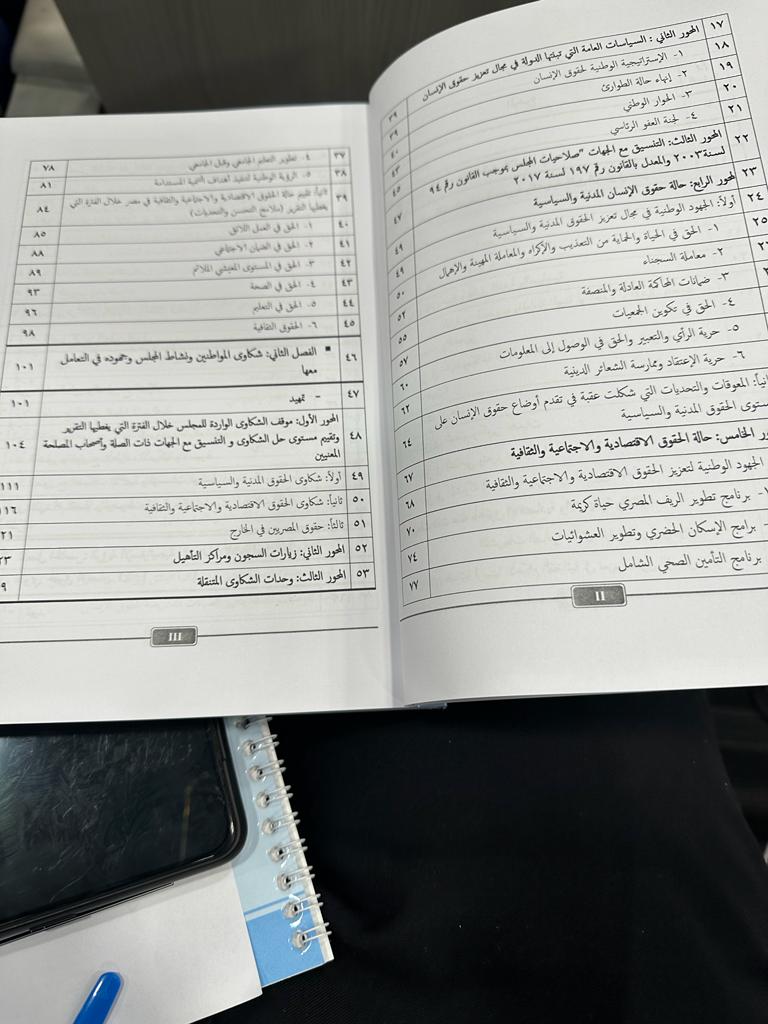 ١٧ المحور الثاني: السياسات العامة التي تبنتها الدولة في مجال تعزيز حقوق الإنسان ٣٩
١٨ ١- الإستراتيجية الوطنية لحقوق الإنسان ٣٩
١٩ ٢- إنهاء حالة الطوارئ
٢٠ ٣- الحوار الوطني
٢١ ٤- لجنة العفو الرئاسي
٢٢ المحور الثالث: التنسيق مع الجهات "صلاحيات المجلس بموجب القانون رقم ٩٤
لسنة ٢٠٠٣ والمعدل بالقانون رقم ١٩٧ لسنة ٢٠١٧
٢٣ لمحور الرابع: حالة حقوق الإنسان المدنية والسياسية ٤٧
٢٤ أولاً: الجهود الوطنية في مجال تعزيز الحقوق المدنية والسياسية ٤٩
٢٥ ١- الحق في الحياة والحماية من التعذيب والإكراه والمعاملة المهينة والإهمال ٤٩
٢- معاملة السجناء ٥٠
٣- ضمانات المحاكمة العادلة والمنصفة ٥٢
٤- الحق في تكوين الجمعيات ٥٥
٥- حرية الرأي والتعبير والحق في الوصول إلى المعلومات ٥٧
٦- حرية الإعتقاد وممارسة الشعائر الدينية ٦٠
انياً: المعوقات والتحديات التي شكلت عقبة في تقدم أوضاع حقوق الإنسان على ٦٢
ستوى الحقوق المدنية والسياسية
ور الخامس: حالة الحقوق الاقتصادية والاجتماعية والثقافية ٦٤
الجهود الوطنية لتعزيز الحقوق الاقتصادية والاجتماعية والثقافية ٦٧
- برنامج تطوير الريف المصري حياة كريمة ٦٨
- برامج الإسكان الحضري وتطوير العشوائيات ٧٠
برنامج التأمين الصحي الشامل ٧٤
٧٧
II
٣٧ ٤- تطوير التعليم الجامعي وقبل الجامعي ٧٨
٣٨ ٥- الرؤية الوطنية لتنفيذ أهداف التنمية المستدامة ٨١
٣٩ ثانياً: تقييم حالة الحقوق الاقتصادية والاجتماعية والثقافية في مصر خلال الفترة التي
يغطيها التقرير (ملامح التحسن والتحديات) ٨٤
٤٠ ١- الحق في العمل اللائق ٨٥
٤١ ٢- الحق في الضمان الاجتماعي ٨٨
٤٢ ٣- الحق في المستوى المعيشي الملائم ٨٩
٤٣ ٤- الحق في الصحة ٩٣
٤٤ ٥- الحق في التعليم ٩٦
٤٥ ٦- الحقوق الثقافية ٩٨
٤٦ ▪ الفصل الثاني: شكاوى المواطنين ونشاط المجلس وجهوده في التعامل
معها ١٠١
٤٧ - تمهيد ١٠١
٤٨ المحور الأول: موقف الشكاوى الواردة للمجلس خلال الفترة التي يغطيها التقرير
وتقييم مستوى حل الشكاوى و التنسيق مع الجهات ذات الصلة وأصحاب المصلحة ١٠٤
المعنيين
٤٩ أولاً: شكاوى الحقوق المدنية والسياسية ١١١
٥٠ ثانياً: شكاوى الحقوق الاقتصادية والاجتماعية والثقافية ١١٦
٥١ ثالثاً: حقوق المصريين في الخارج ٢١
٥٢ المحور الثاني: زيارات السجون ومراكز التأهيل ٢٣
٥٣ المحور الثالث: وحدات الشكاوى المتنقلة ٩
III